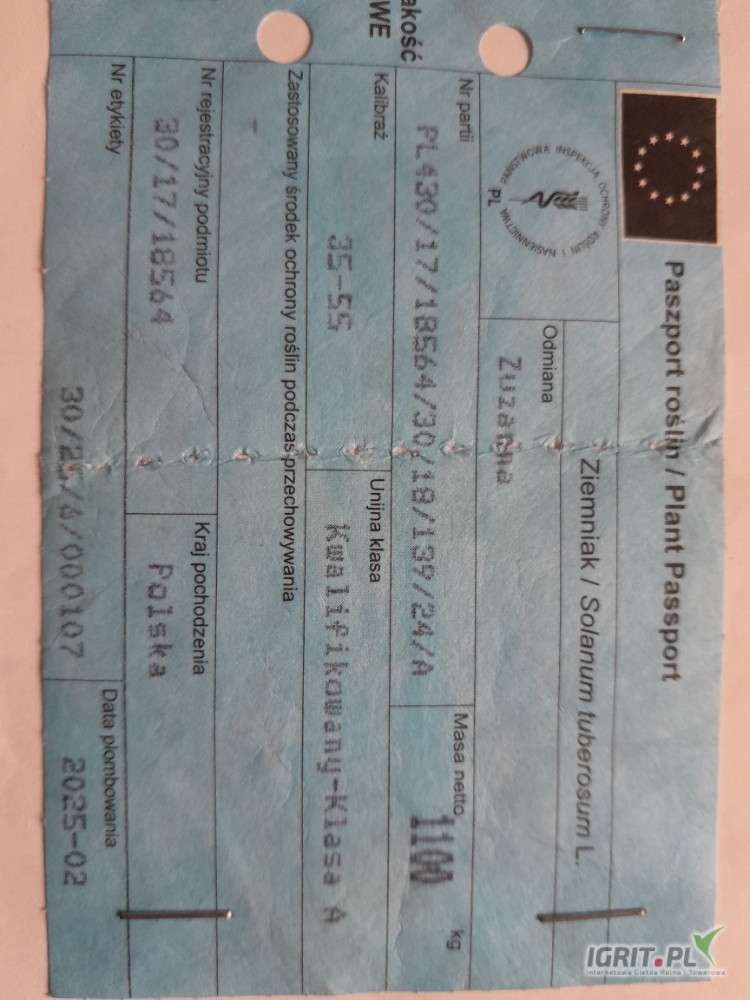 akość
WE
Paszport roślin / Plant Passport
Ziemniak / Solanum tuberosum L.
PAŃSTWOWA INSPEKCJA OCHRONY ROŚLIN I NASIENNICTWA
PL
Odmiana
Zuzanna
Nr partii
PL430/17/18564/30/18/139/24/A
Masa netto
1100 kg
Kalibraż
35-55
Unijna klasa
Kwalifikowany-Klasa A
Zastosowany środek ochrony roślin podczas przechowywania
-
Nr rejestracyjny podmiotu
30/17/18564
Kraj pochodzenia
Polska
Nr etykiety
Data plombowania
2025-02
IGRIT.PL
Internetowa Giełda Rolna i Towarowa